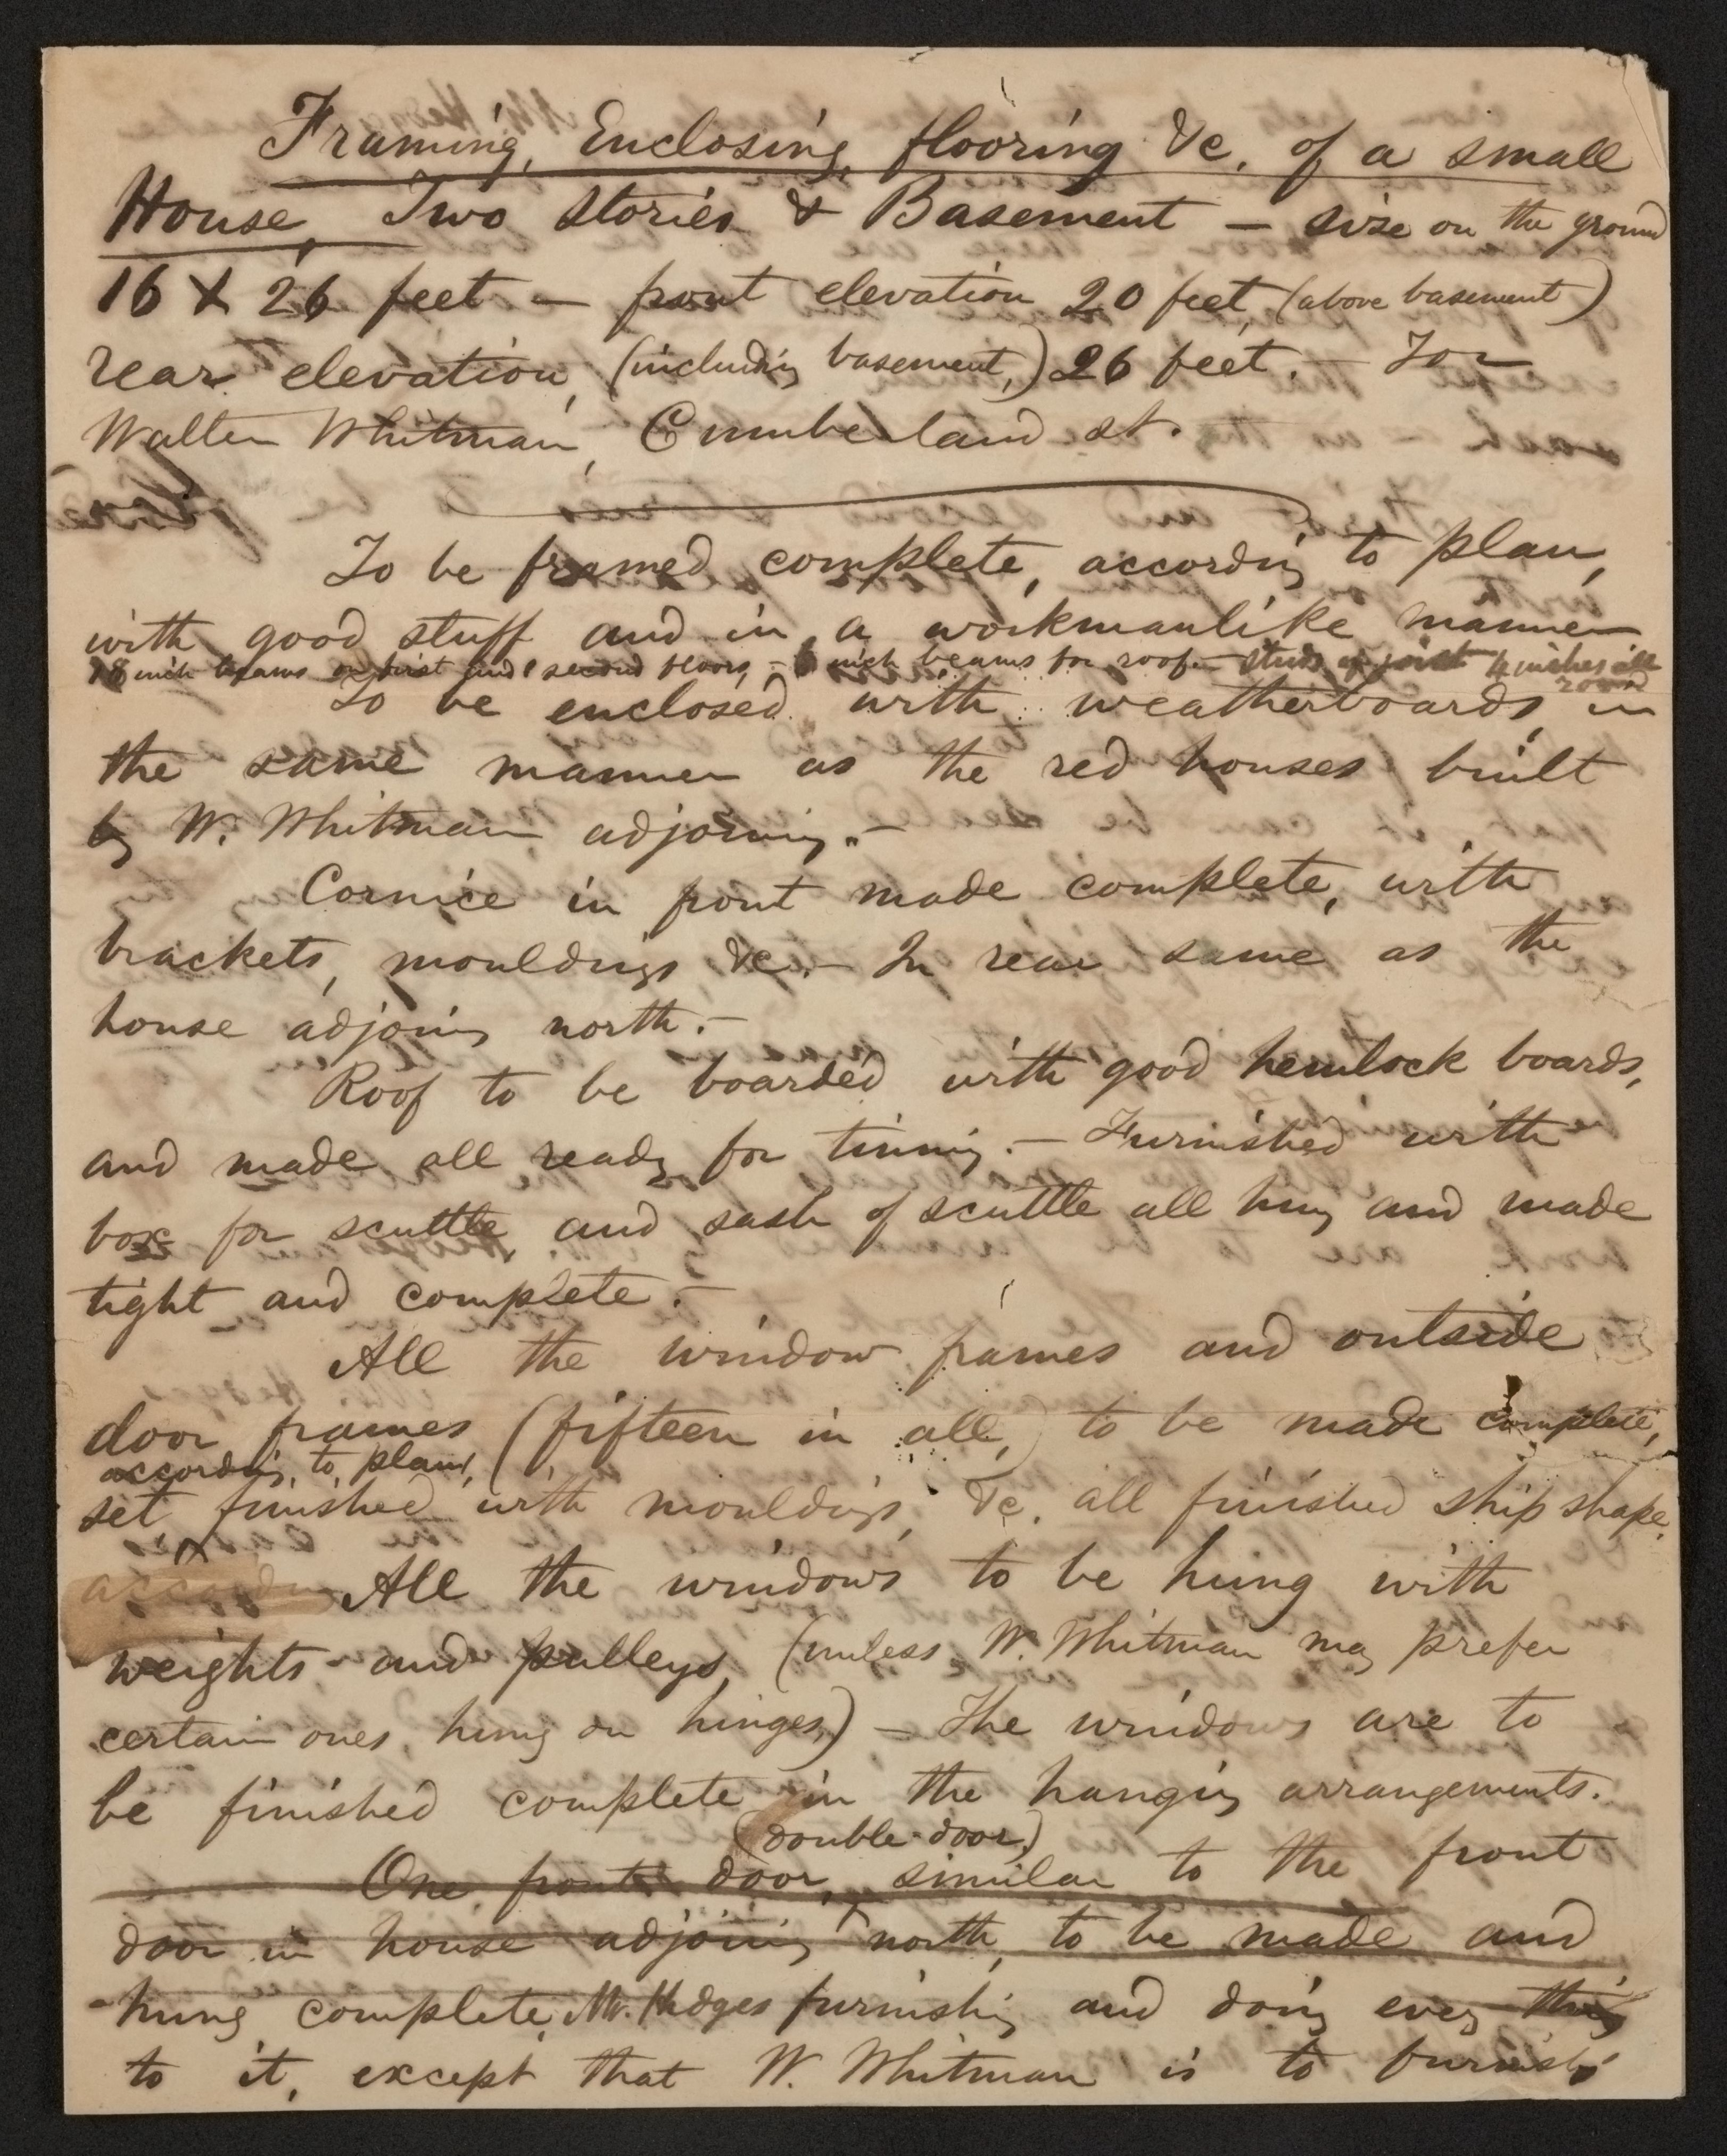 Framing, Enclosing, flooring &c. of a small
House, Two stories & Basement — size on the ground
16 X 26 feet — front elevation 20 feet, (above basement)
rear elevation, (including basement,) 26 feet. — For
Walter Whitman, Cumberland st.
To be framed complete, according to plan,
with good stuff and in a workmanlike manner
8 inch beams on first and second floors, — 6 inch beams for roof — studs of joist 4 inches all
round
To be enclosed with weatherboards, in
the same manner as the red houses built
by W. Whitman adjoining. —
Cornice in front made complete, with
brackets, mouldings, &c. — In rear same as the
house adjoining north. —
Roof to be boarded with good hemlock boards,
and made all ready for tinning. — Furnished with
box for scuttle, and sash of scuttle all hung and made
tight and complete. —
All the window frames and outside
door frames (fifteen in all,) to be made complete,
according to plan,
set, finished with mouldings, &c. all finished ship shape.
accordin All the windows to be hung with
weights and pulleys, (unless W. Whitman may prefer
certain ones, hung on hinges,) — The windows are to
be finished complete in the hanging arrangements.
(double-door,)
One front door, similar to the front
door in house adjoining north, to be made and
hung complete, Mr. Hedges furnishing and doing every thing
to it, except that W. Whitman is to furnish